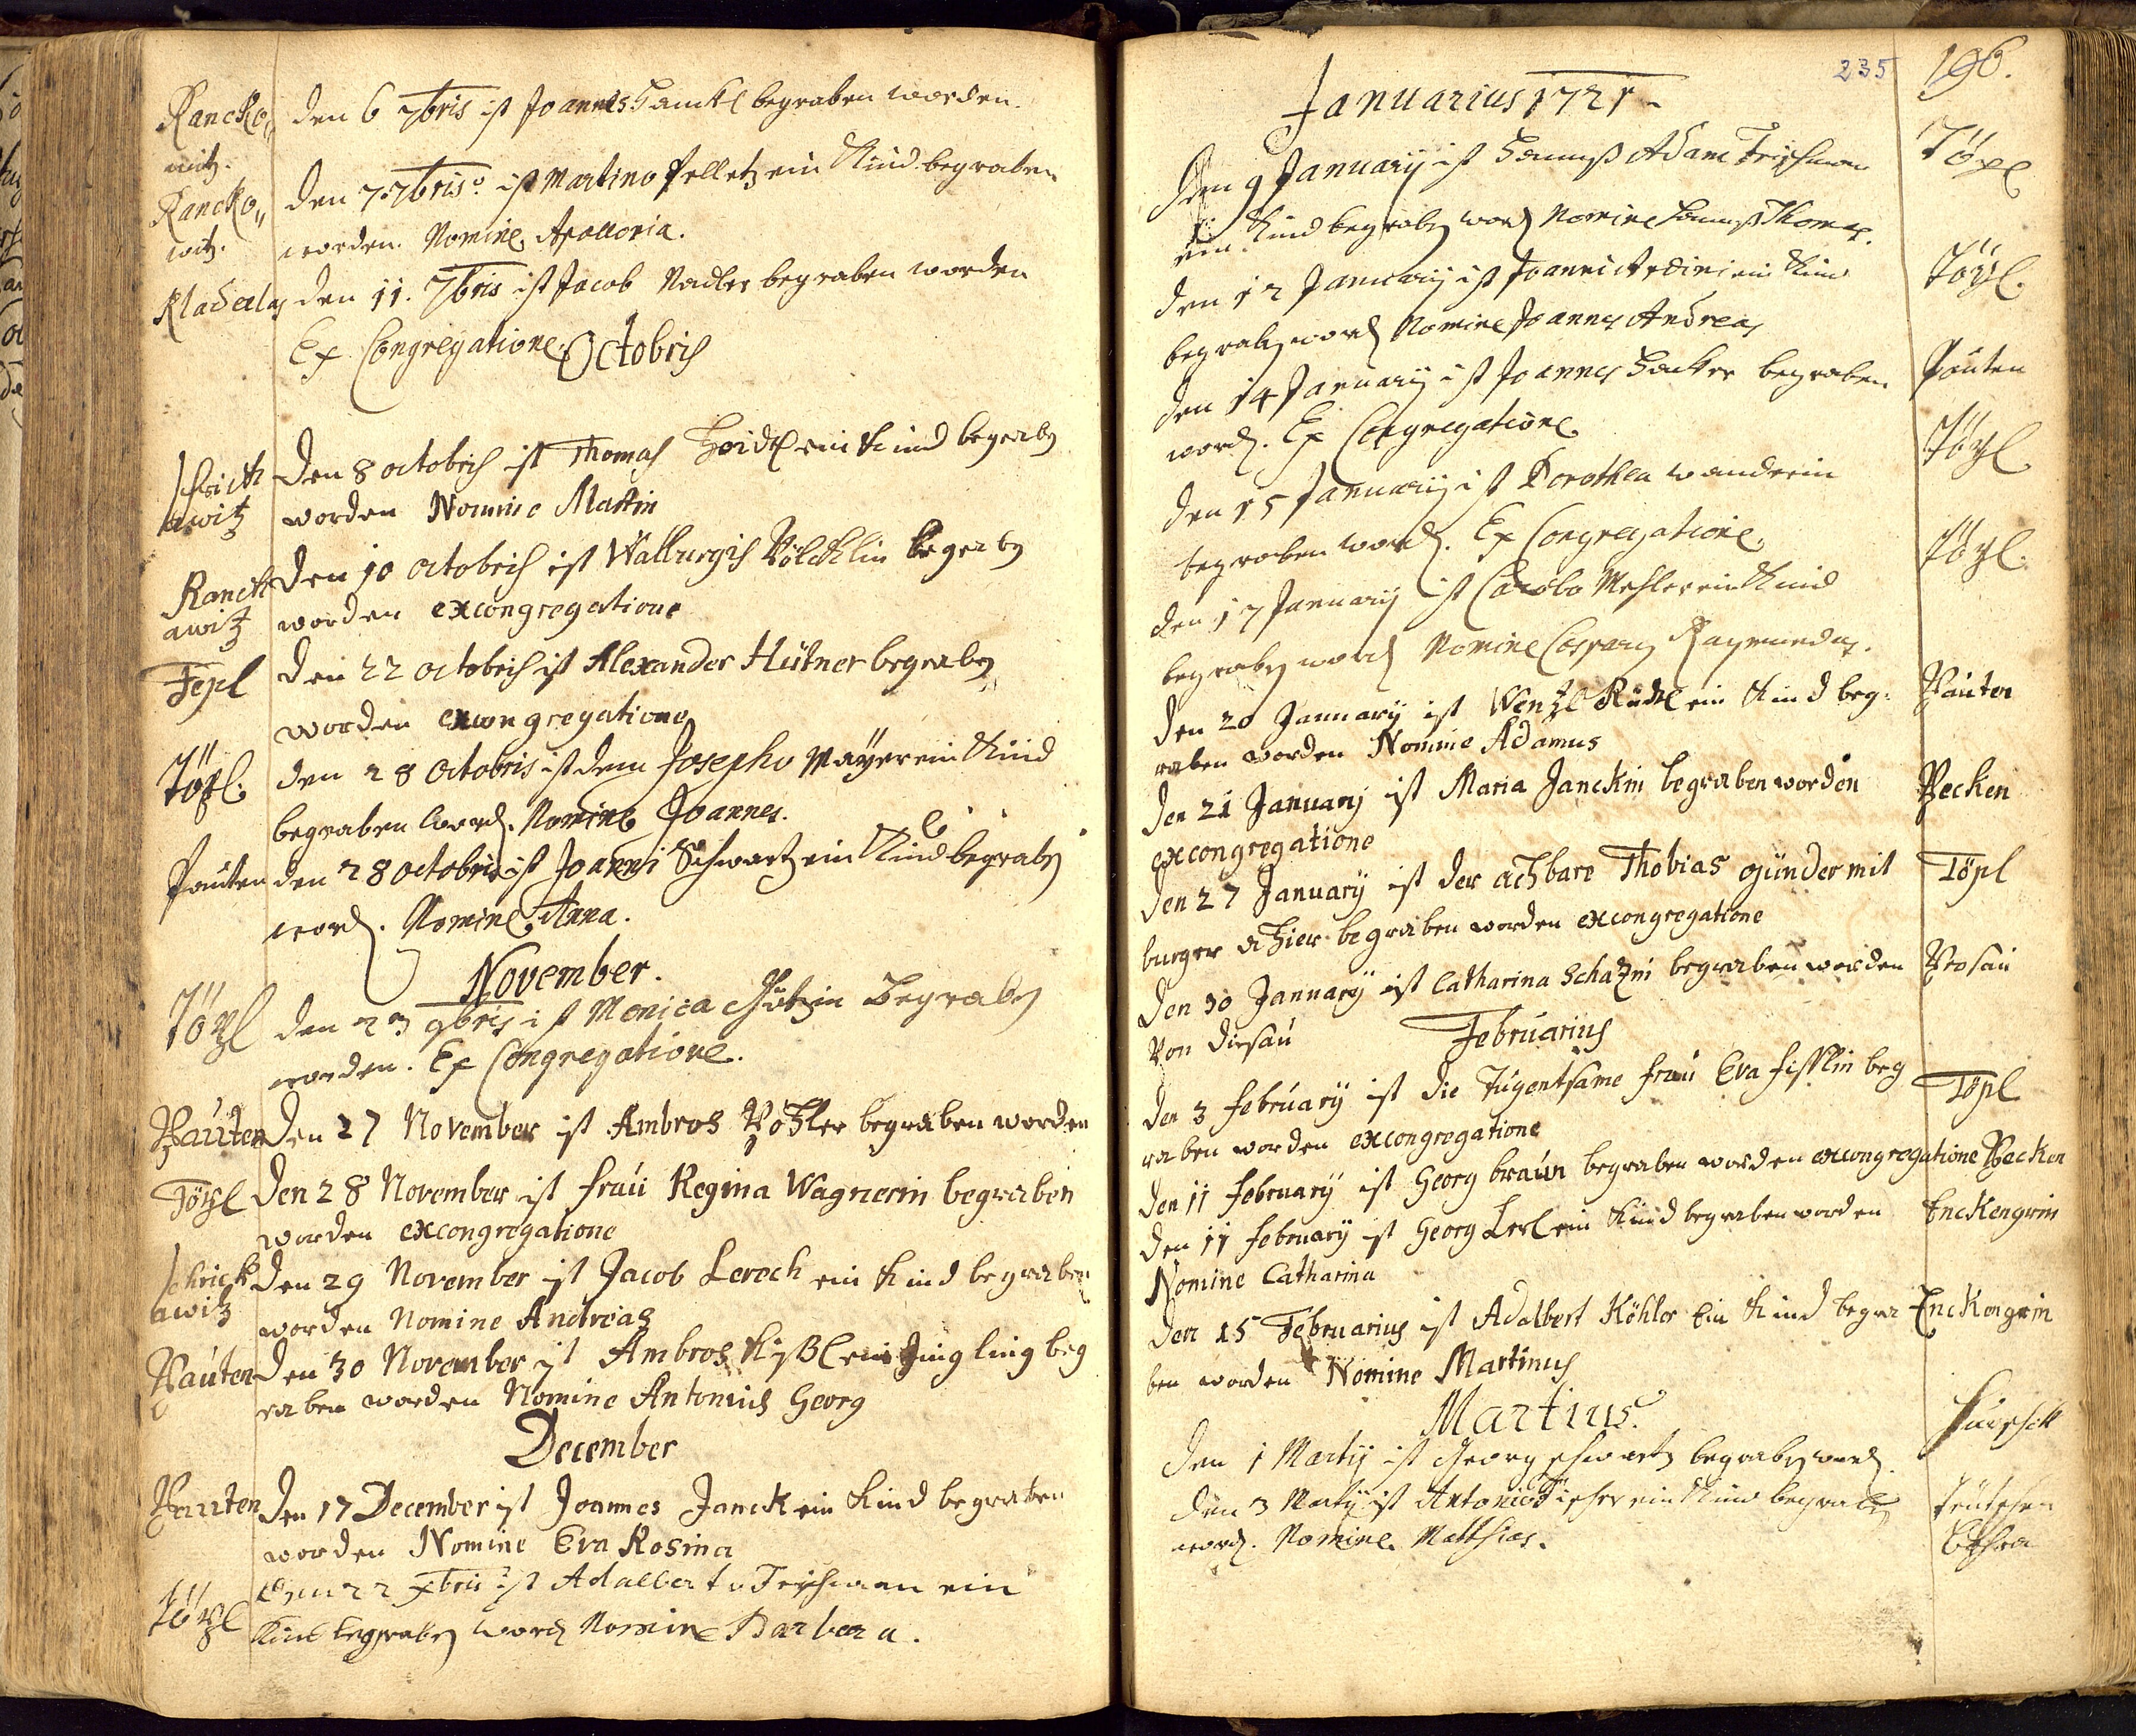 Rancko„
witz.
den 6 7bris ist Joannes Hanckl begraben worden.
Rancko„
witz.
den 7. 7bris ist Martino felletz ein Kind begraben
worden. Nomine Apollonia.
Kladerlas den 11. 7bris ist Jacob Nadler begraben worden
Ex Congregatione.
Octobris
schrick
awitz
den 8 octobris ist Thomas Hoidl ein Kind begraben
worden Nomine Martin
Ranck
awitz
den 10 octobris ist Walburgis Völcklin begraben
worden excongregatione
Tepl den 22 octobris ist Alexander Hütner begraben
worden excongregatione
Töpl. den 28 Octobris ist dem Josepho Mayer ein Kind
begraben word. Nomine Joannes.
Pauten den 28 octobris ist Joanni Schwartz ein Kind begraben
word. Nomine Anna.
November.
Töpl den 23 9bris ist Monica begraben
worden. Ex Congregatione.
Pauten den 27 November ist Ambros Pöhler begraben worden
Töpl den 28 November ist frau Regina Wagnerin begraben
worden excongregatione
schrick
awitz
den 29 November ist Jacob Lerech ein Kind begraben
worden Nomine Andreas
Pauten den 30 November ist Ambros ein Jüngling beg
raben worden Nomine Antonius Georg
December
Pauten den 17 December ist Joannes Janck ein Kind begraben
worden Nomine Eva Rosina
Töpl den 22 xbris ist Adalberto Teischman ein
Kind begraben word Nomine Barbara.
235 196.
Januarius 1721.
den 9 January ist Hannß Adam Teischman Töpl
ein Kind begraben word Nomine Hannß Thomas.
den 12 January ist Joanni ein Kind Töpl.
begraben word Nomine Joannes Andreas
den 14 January ist Joannes Hacker begraben Pauten
word. Ex Congregatione.
den 15 January ist Dorothea wanderin Töpl
begraben word. Ex Congregatione.
den 17 January ist Carolo Mesler ein Kind Töpl.
begraben word Nomine Caspary Raymundus.
den 20 January ist Wenzl Rüdl ein Kind beg: Pauten
raben worden Nomine Adamus
den 21 January ist Maria Janckin begraben worden Pecken
excongregatione
den 27 January ist der achbare Thobias günder mit Töpl
burger alhier begraben worden excongregatione
den 30 January ist Catharina Schazin begraben worden Prosau
Von dirsau
Februarius
den 3 february ist die Tugentsame frau Eva fisslin beg Töpl
raben worden excongregatione
den 11 february ist Georg braun begraben worden excongregatione Pecken
den 11 february ist Georg Lerl ein Kind begraben worden Enckengrin
Nomine Catharina
den 15 Februarius ist Adalbert Köhler Ein Kind begra Enckengrin
ben worden Nomine Martinus
Martius.
den 1 Marty ist Georg schwartz begraben word.
den 3 Marty ist Antonio ein Kind begraben
word. Nomine Matthias.